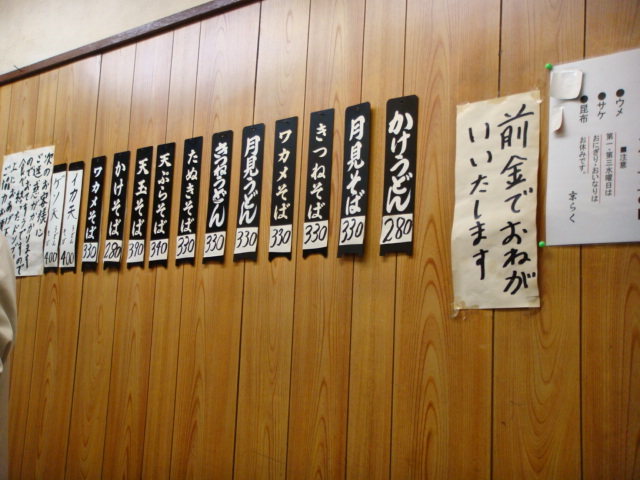 ●ウメ
●サケ
●昆布
■注意
第一・第三水曜日は
おにぎり・おいなりは
お休みです。
京らく
前金でおねが
いいたします
かけうどん
280
月見そば
330
きつねそば
330
ワカメそば
330
月見うどん
330
きつねうどん
330
たぬきそば
330
天ぷらそば
340
天玉そば
390
かけそば
280
ワカメそば
330
イカ天
400
400
次のお客様に